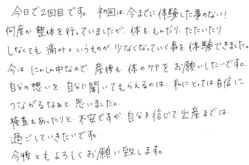 今日で2回目です。初回は今までに体験した事のない!
何度か整体を行っていましたが、体をもんだり、たたいたり
しなくても痛みというものが少なくなっていく事を体験できました。
今は、にんしん中なので、産後も体のケアをお願いしたいです。
自分の想いを自分に聞いてもらえるのは、私にとっては自信に
つながるなぁと思いました。
検査もあったりと不安ですが、自分を信じて出産までは
過ごしていきたいです。
今後ともよろしくお願い致します。